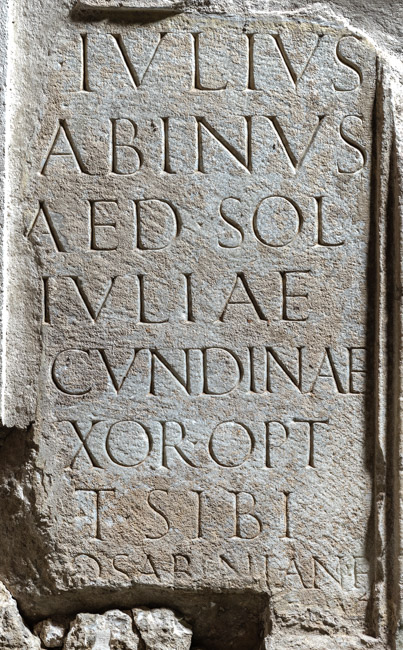 IVLIVS
ABINVS
AED · SOL
IVLIAE
CVNDINAE
XOR · OPT
T SIBI